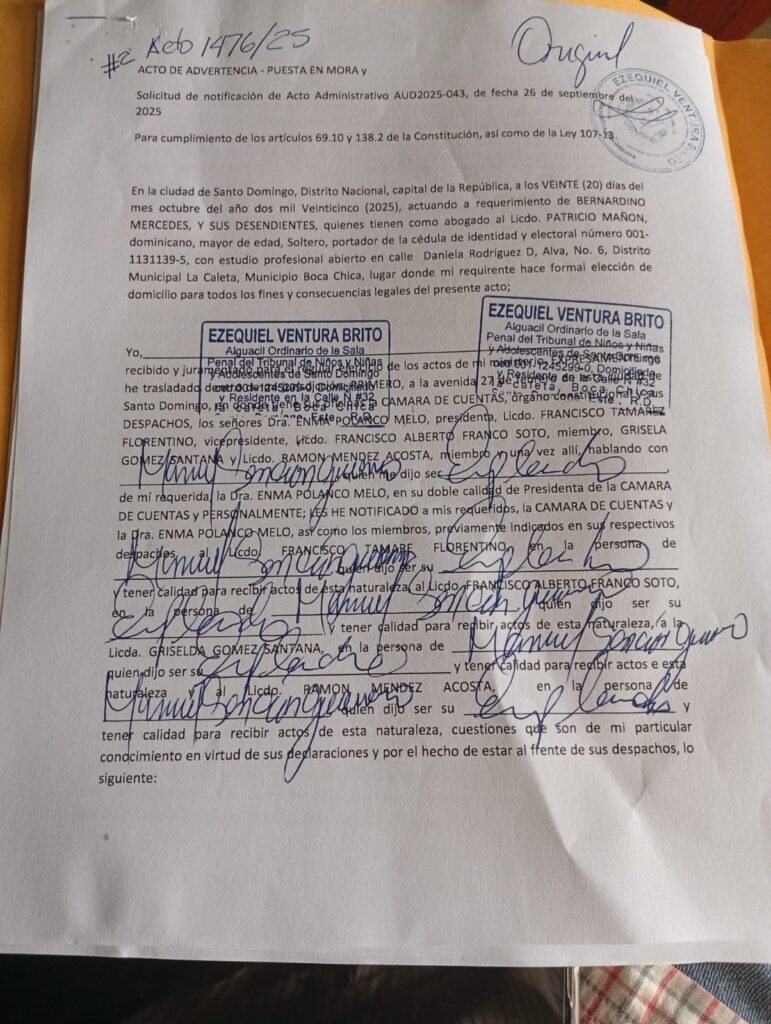 #2 Acto 1476/25
Original
ACTO DE ADVERTENCIA - PUESTA EN MORA y
Solicitud de notificación de Acto Administrativo AUD2025-043, de fecha 26 de septiembre del
2025
Para cumplimiento de los artículos 69.10 y 138.2 de la Constitución, así como de la Ley 107-13.
EZEQUIEL VENTURA BRITO
En la ciudad de Santo Domingo, Distrito Nacional, capital de la República, a los VEINTE (20) días del
mes octubre del año dos mil Veinticinco (2025), actuando a requerimiento de BERNARDINO
MERCEDES, Y SUS DESENDIENTES, quienes tienen como abogado al Licdo. PATRICIO MAÑON,
dominicano, mayor de edad, Soltero, portador de la cédula de identidad y electoral número 001-
1131139-5, con estudio profesional abierto en calle Daniela Rodríguez D, Alva, No. 6, Distrito
Municipal La Caleta, Municipio Boca Chica, lugar donde mi requirente hace formal elección de
domicilio para todos los fines y consecuencias legales del presente acto;
EZEQUIEL VENTURA BRITO
Alguacil Ordinario de la Sala
Penal del Tribunal de Niños y Niñas
y Adolescentes de Santo Domingo
001-1245299-0, Domiciliado
y Residente en la Calle N #32
la caleta, Boca Chica
Este., R.D.
EZEQUIEL VENTURA BRITO
Alguacil Ordinario de la Sala
Penal del Tribunal de Niños y Niñas
y Adolescentes de Santo Domingo
001-1245299-0, Domiciliado
y Residente en la Calle N #32
la caleta, Boca Chica
Este., R.D.
Yo, EXPRESAMENTE
recibido y juramentado para el regular ejercicio de los actos de mi ministerio,
he trasladado dentro de mi jurisdicción: PRIMERO, a la avenida 27 de febrero de esta ciudad de
Santo Domingo, en donde tiene sus oficinas la CAMARA DE CUENTAS, órgano constitucional y sus
DESPACHOS, los señores Dra. ENMA POLANCO MELO, presidenta, Licdo. FRANCISCO TAMAREZ
FLORENTINO, vicepresidente, Licdo. FRANCISCO ALBERTO FRANCO SOTO, miembro, GRISELA
GOMEZ SANTANA y Licdo. RAMON MENDEZ ACOSTA, miembro y una vez allí, hablando con
Manuel quien me dijo ser Empleado
de mí requerida, la Dra. ENMA POLANCO MELO, en su doble calidad de Presidenta de la CAMARA
DE CUENTAS y PERSONALMENTE; LES HE NOTIFICADO a mis requeridos, la CAMARA DE CUENTAS y
la Dra. ENMA POLANCO MELO, así como los miembros, previamente indicados en sus respectivos
despachos, al Licdo. FRANCISCO TAMARE FLORENTINO, en la persona de
Manuel quien dijo ser su Empleado
y tener calidad para recibir actos de esta naturaleza, al Licdo. FRANCISCO ALBERTO FRANCO SOTO,
en la persona de Manuel quien dijo ser su
Empleado y tener calidad para recibir actos de esta naturaleza, a la
Licda. GRISELDA GOMEZ SANTANA, en la persona de Manuel
quien dijo ser su Empleado y tener calidad para recibir actos e esta
naturaleza y al Licdo. RAMON MENDEZ ACOSTA, en la persona de
Manuel quien dijo ser su Empleado y
tener calidad para recibir actos de esta naturaleza, cuestiones que son de mi particular
conocimiento en virtud de sus declaraciones y por el hecho de estar al frente de sus despachos, lo
siguiente: